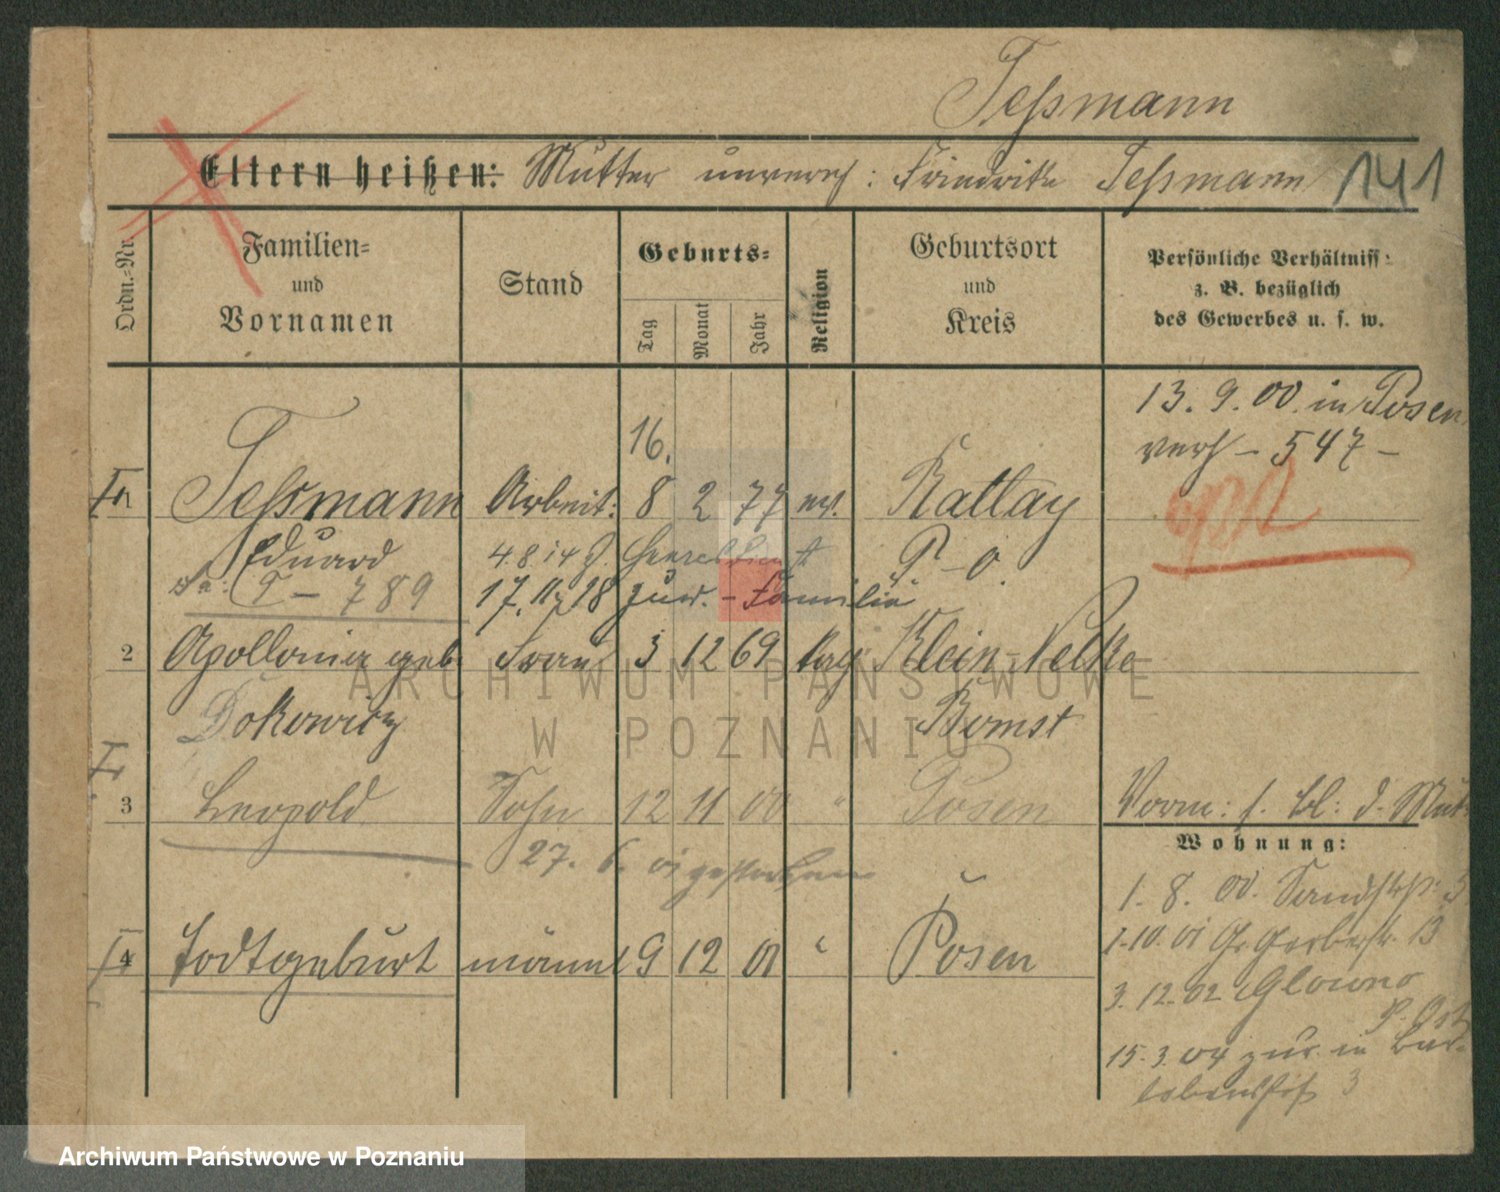 Teßmann
Eltern heißen: Mutter unverh: Friedrike Teßmann 141
Ordn.-Nr.
Familien-
und
Vornamen
Stand
Geburts-
Tag
Monat
Jahr
Religion
Geburtsort
und
Kreis
Persönliche Verhältniss:
z. B. bezüglich
des Gewerbes u. s. w.
13. 9. 00. in Posen
verh - 547 -
16.
1 Teßmann Arbeit: 8 2 77 ev. Rattay
Eduard 4.8.14 Heeresdienst P-O.
T - 789 17.11.18 zur. - Familie
2 Apollonia geb. Frau 3 12 69 kath Klein-Nelke
Dokowicz Bomst
3 Leopold Sohn 12 11 00 " Posen
Vorm: f. bl: d. Mutt
27. 6. 01 gestorben
Wohnung:
1. 8. 00. Sandstr: 3
1.10.01 Gr Gerberstr. 13
4 Todtgeburt männl 9 12 01 " Posen
3. 12. 02 Glowno
P. Ost
15.3.04 zur. in
3
ARCHIWUM PAŃSTWOWE
W POZNANIU
Archiwum Państwowe w Poznaniu